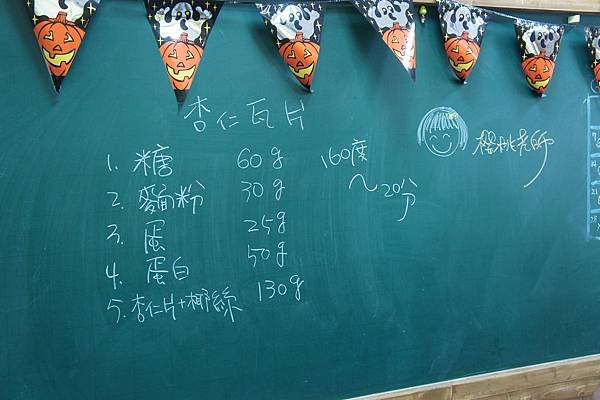 杏仁瓦片
1. 糖 60g 160度
2. 麵粉 30g ~20分
3. 蛋 25g
4. 蛋白 50g
5. 杏仁片+椰絲 130g
櫻桃老師